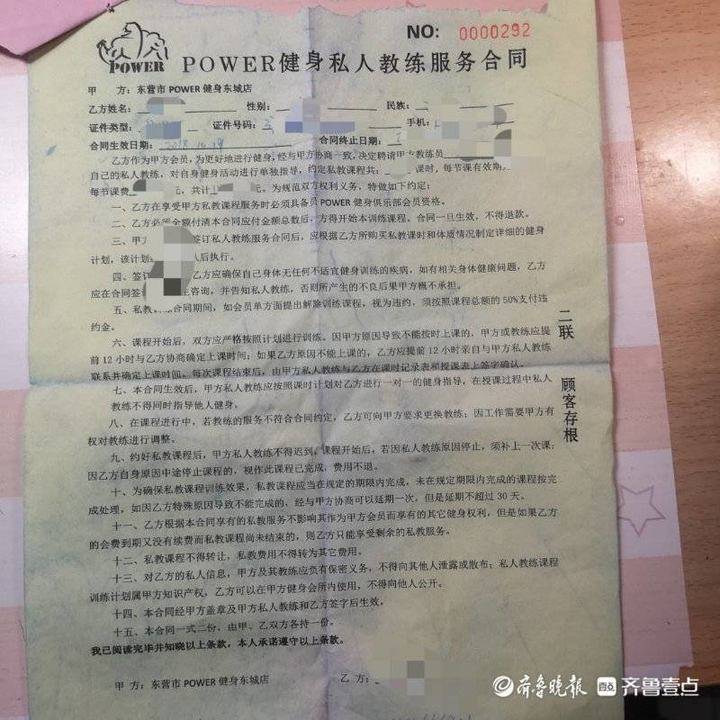 NO: 0000292
POWER
POWER健身私人教练服务合同
甲 方：东营市 POWER 健身东城店
乙方姓名： 性别： 民族：
证件类型： 证件号码： 手机：
合同生效日期： 合同终止日期：
乙方作为甲方会员，为更好地进行健身，经与甲方协商一致，决定聘请甲方教练员
自己的私人教练，对自身健身活动进行单独指导，约定私教课程共： 课时，每节课有效期
每节课费 元，共计 元，为规范双方权利义务，特做如下约定：
一、乙方在享受甲方私教课程服务时必须具备 POWER 健身俱乐部会员资格。
二、乙方必须全额付清本合同应付金额总数后，方得开始本训练课程。合同一旦生效，不得退款。
三、甲方 签订私人教练服务合同后，应根据乙方所购买私教课时和体质情况制定详细的健身
计划，该计划 人后执行。
四、签订 乙方应确保自己身体无任何不适宜健身训练的疾病，如有相关身体健康问题，乙方
应在合同签 咨询，并告知私人教练，否则所产生的不良后果甲方概不承担。
五、私教 合同期间，如会员单方面提出解除训练课程，视为违约，须按照课程总额的 50%支付违
约金。
六、课程开始后，双方应严格按照计划进行训练。因甲方原因导致不能按时上课的，甲方或教练应提
前 12 小时与乙方协商确定上课时间；如果乙方原因不能上课的，乙方应提前 12 小时亲自与甲方私人教练
联系并确定上课时间。每次课程结束后，由甲方私人教练与乙方在课时记录表和授课表上签字确认。
七、本合同生效后，甲方私人教练应按照课时计划对乙方进行一对一的健身指导，在授课过程中私人
教练不得同时指导他人健身。
八、在课程进行中，若教练的服务不符合合同约定，乙方可向甲方要求更换教练；因工作需要甲方有
权对教练进行调整。
九、约好私教课程后，甲方私人教练不得迟到，课程开始后，若因私人教练原因停止，须补上一次课；
因乙方自身原因中途停止课程的，视作此课程已完成，费用不退。
十、为确保私教课程训练效果，私教课程应当在规定的期限内完成，未在规定期限内完成的课程按完
成处理，如因乙方特殊原因导致不能完成的，经与甲方协商可以延期一次，但是延期不超过 30 天。
十一、乙方根据本合同享有的私教服务不影响其作为甲方会员而享有的其它健身权利，但是如果乙方
的会费到期又没有续费而私教课程尚未结束的，则乙方只能享受剩余的私教服务。
十二、私教课程不得转让，私教费用不得转为其它费用。
十三、对乙方的私人信息，甲方及其教练应负有保密义务，不得向其他人泄露或散布；私人教练课程
训练计划属甲方知识产权，乙方可以在甲方健身会所内使用，不得向他人公开。
十四、本合同经甲方盖章及甲方私人教练和乙方签字后生效。
十五、本合同一式二份，由甲、乙双方各持一份。
我已阅读完毕并知晓以上条款，本人承诺遵守以上条款。
甲 方：东营市 POWER 健身东城店 乙 方：
二联 顾客存根
齐鲁晚报 齐鲁壹点